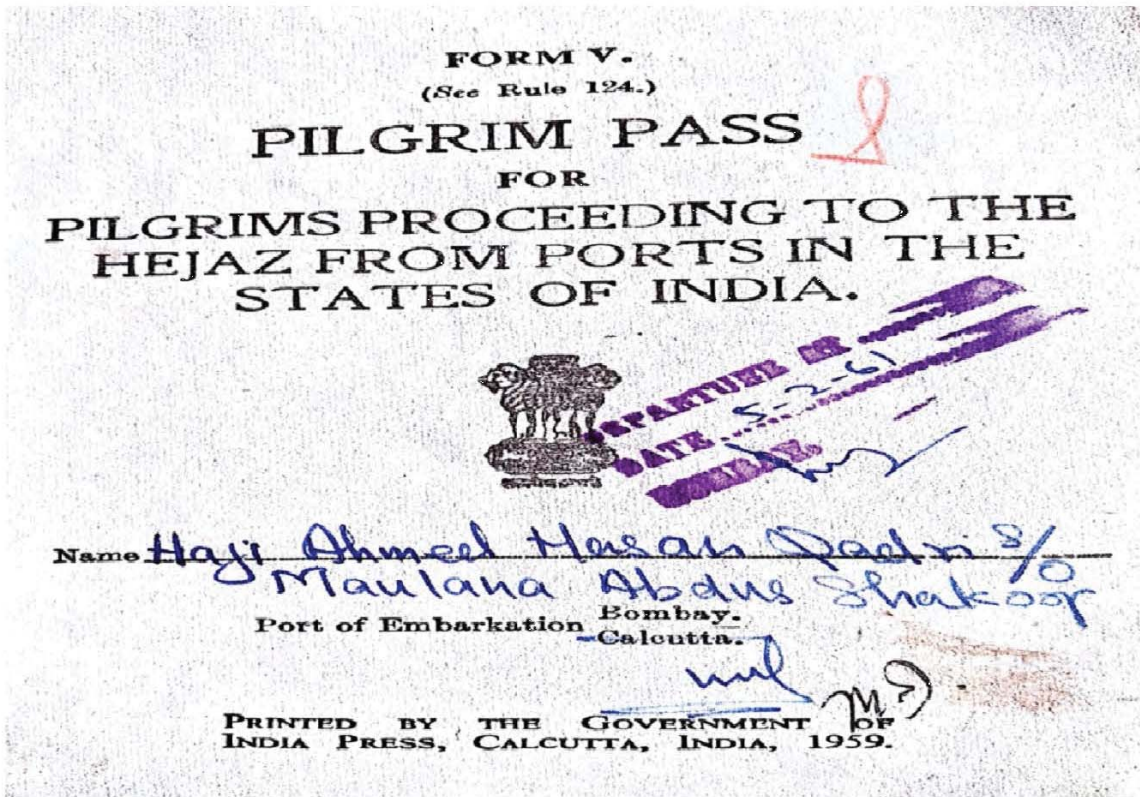 FORM V.
(See Rule 124.)
PILGRIM PASS
FOR
PILGRIMS PROCEEDING TO THE
HEJAZ FROM PORTS IN THE
STATES OF INDIA.
DEPARTURE
DATE 5-2-61
BOMBAY.
Name Haji Ahmed Hasan Qadri S/O
Maulana Abdus Shakoor
Port of Embarkation Bombay.
Calcutta.
PRINTED BY THE GOVERNMENT OF
INDIA PRESS, CALCUTTA, INDIA, 1959.